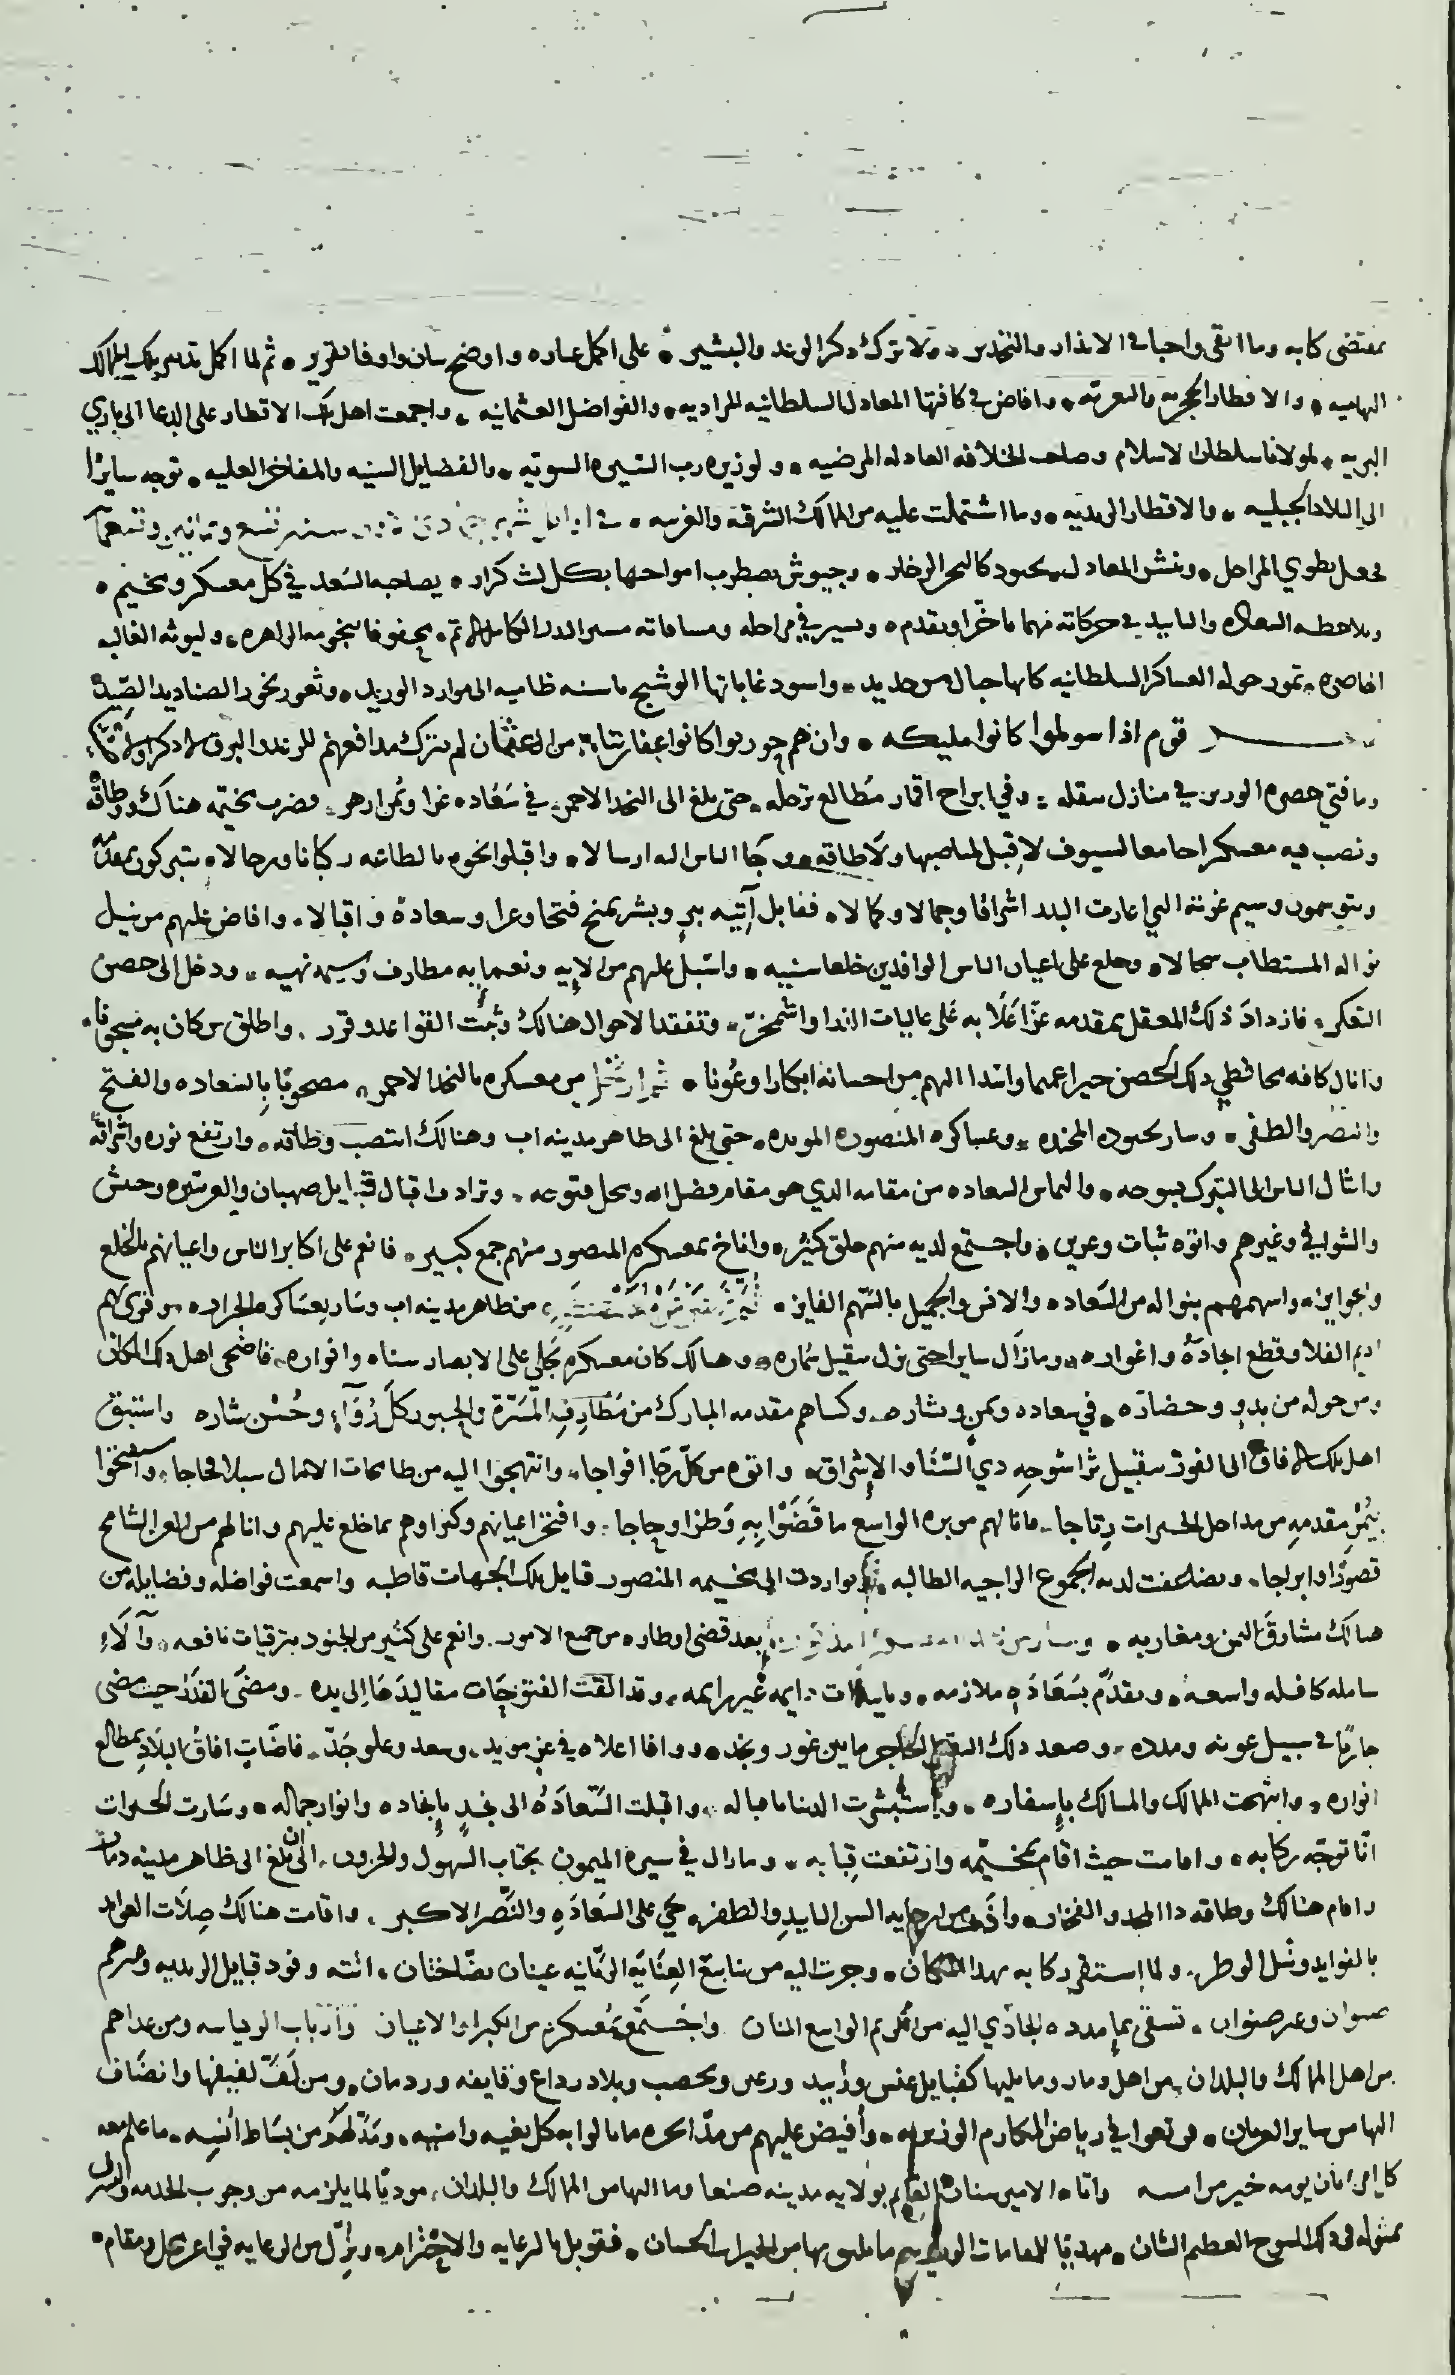 بمقتضى كتابه وما ابقى واجبا في الانذار والتحذير ولا ترك ذكر الوعد والتبشير على اكمل عباره واوضح بيان واوفا تقرير ثم لما اكمل تدبير تلك الممالك
التهاميه والاقطار والتعزيه وافاض في كافتها المعادل السلطانيه المراديه والفواضل العثمانيه واجمعت اهل تلك الاقطار على الدعا الى باري
البريه لمولانا سلطان الاسلام وصاحب الخلافه العادله المرضيه ولوزيره رب السيره السويه والفضايل السنيه والمفاخر العليه توجه سايرًا
الى البلاد الجبليه والاقطار الزيديه وما اشتملت عليه من الممالك الشرقيه والغربيه في اوايل سنه تسع وثمانين وتسعمايه
فجعل يطوي المراحل وينشر المعادل بجنود كالبحر الزخار وجيوش يضطرب امواجها بكل ليث كرار يصاحبه السعد في كل معسكر ومخيم
ويلاحظه السعاده والتاييد في حركاته مهما تاخر او تقدم ويسير في مراحله ومسافاته مسير البدر الكامل الاتم يحفو نجومه الزاهره وليوثه الغالبه
القاصره تمور حوله العساكر السلطانيه كانها جبال من حديد واسود غاباتها الوشيج باسنه ظاميه الى موارد الوريد وثغور نحور الصناديد الصيد
قوم اذا سولموا كانوا مليكه وان هم حوربوا كانوا عفاريتا من ال عثمان لم يترك مدافعهم للرعد والبرق لا ذكرا ولا صيتا
وما فتي حضره الوزير في منازل سعده وفي ابراج اقمار مطالع ترحله حتى بلغ الى النجد الاحمر في سعاده غرا ويمن ازهر فضرب مخيمه هناك ووطاقه
ونصب فيه معسكرا جامعا لسيوف لا قبل لمناصبها ولا طاقه وجا الناس اليه ارسالا واقبلوا نحوه بالطاعه ركبانا ورجالا يتبركون بمقدمه
ويتوسمون وسيم غرته التي اعارت البدر اشراقا وجمالا وكمالا فقابل آتيه ببر وبشر يمنح فتحا وعزا وسعادة واقبالا وافاض عليهم من نيل
نواله المستطاب سجالا وخلع على اعيان الناس الوافدين خلعا سنيه واسبل عليهم من الايه ونعمايه مطارف وسيمه بهيه ودخل الى حصن
التعكر فازداد ذلك المعقل بمقدمه عزًا علا به على عاليات الذرا واشمخر وتفقد الاحوال هنالك وثبت القواعد وقرر واطلق من كان به مسجونا
وانال كافه محافظي ذلك الحصن خيرا عميما وابتدا اليهم من احسانه ابكارا وعونا ثم ارتحل من معسكره بالنجد الاحمر مصحوبًا بالسعاده والفتح
والنصر والظفر وسار بجنوده المجنده وعساكره المنصوره المويده حتى بلغ الى ظاهر مدينه اب وهنالك انتصب وطاقه وارتفع نوره واشراقه
وانثال الناس الى التبرك بسوحه والتماس السعاده من مقامه الذي هو مقام فضل الله ومحل فتوحه وترادف اقبال قبايل صهبان والعرش وحبيش
والشوافي وغيرهم واتوه ثبات وعزين واجتمع لديه منهم خلق كثير واناخ بمعسكره المنصور منهم جمع كبير فانعم على اكابر الناس واعيانهم بالخلع
والجوايز واسهمهم بنواله من السعاده والانس والجميل بالسهم الفايز من ظاهر مدينه اب وسار بعساكره الجراره وفرى بهم
اديم الفلا وقطع اجاده واغواره وما زال سايرا حتى نزل سقيل سماره وهنالك كان معسكره يجلي على الابصار سناه وانواره فاضحى اهل ذلك المكان
ومن حوله من بدو وحضاره في سعاده ويمن وبشاره وكساهم مقدمه المبارك من مطارف المسرة والحبور كل رُوآء وحُسن شاره واستبق
اهل تلك الافاق الى الفوز بتقبيل ثرا سوحه ذي السنا والاشراق واتوه من كل رجا افواجا وانتهجوا اليه من طامحات الامال سبلا فجاجا واستفتحوا
بيمن مقدمه من مداخل الخيرات رتاجا فانالهم من بره الواسع ما قضوا به وطرا وحاجا وافتخر اعيانهم وكبراوهم بما خلع عليهم وانالهم من العز الشامخ
قصورًا وابراجا وتضاعفت لديه الجموع الراجيه الطالبه وتواردت الى مخيمه المنصور قبايل تلك الجهات قاطبه واسمعت فواضله وفضايله من
هنالك مشارق اليمن ومغاربه وسار من بعد قضى اوطاره من جميع الامور وانعم على كثير من الجنود بترقيات نافعه وآلاءِ
شامله كافله واسعه وتقدم بسعاده ملازمه وتاييدات دايمه غير رايمه وقد القت الفتوحات مقاليدها الى يده ومضى القدر حيث مضى
جاريًا في سبيل عونه ومدده وصعد ذلك النقيل الحاجر ما بين غور ونجد ووافا اعلاه في عز مويد وسعد وعلو جدّ فاضات افاق البلاد بمطالع
انواره وابتهجت الممالك والمسالك باسفاره واستبشرت الدنيا باقباله واقبلت السعاده الى نجد بانجاده وانوار جماله وسارت الخيرات
انّا توجّه ركابه واقامت حيث اقام مخيمه وارتفعت قبابه وما زال في سيره الميمون يجتاب السهول والحزون الى ان بلغ الى ظاهر مدينه ذمار
واقام هنالك وطاقه ذا المجد والفخار السن التاييد والظفر حي على السعاده والنصر الاكبر واقامت هنالك صلات العوايد
بالفوايد ونيل الوطر ولما استقر ركابه بهذا المكان وجرت اليه من ينابيع العنايه الربانيه عينان نضاختان اتته وفود قبايل الزيديه وغيرهم
صنوان وغير صنوان تسقى بما مدده الجاذي اليه من الكريم الواسع المنان واجتمع بمعسكره من الكبراء والاعيان وارباب الرياسه ومن عداهم
من اهل الممالك والبلدان من اهل ذمار وما يليها كقبايل عنس وزبيد ورعين ويحصب وبلاد رداع وقايفه وردمان ومن لف لفيفها وانضاف
اليها من ساير العربان فرتعوا في رياض المكارم الوزيريه وأفيض عليهم من مدّ ابحره ما نالوا به كل بغيه وامنيه ومدّ لهم من بساط انسه ما علم معه
كل امرئ ان يومه خير من امسه واتاه الامير سنان القايم بولايه مدينه صنعا وما اليها من الممالك والبلدان موديًا لما يلزمه من وجوب الخدمه
بمثوله في ذلك السوح العظيم الشان مهديًا للمقامات الوزيريه ما يليق بها من الخيرات الحسان فقوبل بالرعايه والاحترام ونُزّل من الرعايه في اعز محل ومقام